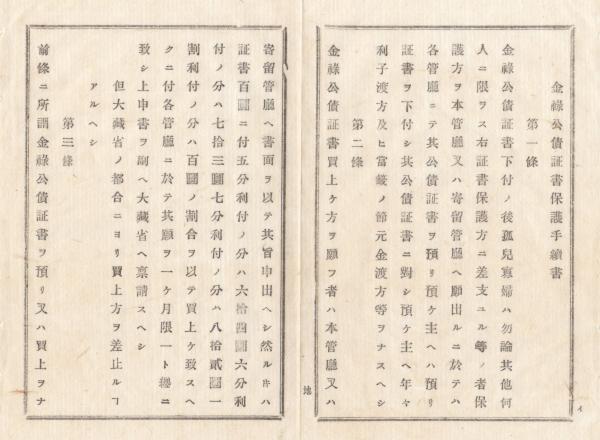 金祿公債証書保護手續書
第一條
金祿公債証書下付ノ後孤兒寡婦ハ勿論其他何
人ニ限ラス右証書保護方ニ差支ユル等ノ者保
護方ヲ本管廳又ハ寄留管廳ヘ願出ルニ於テハ
各管廳ニテ其公債証書ヲ預リ預ケ主ヘハ預リ
証書ヲ下付シ其公債証書ニ對シ預ケ主ヘ年々
利子渡方及ヒ當籤ノ節元金渡方等ヲナスヘシ
第二條
金祿公債証書買上ケ方ヲ願フ者ハ本管廳又ハ
寄留管廳ヘ書面ヲ以テ其旨申出ヘシ然ル片ハ
証書百圓ニ付五分利付ノ分ハ六拾四圓六分利
付ノ分ハ七拾三圓七分利付ノ分ハ八拾貳圓一
割利付ノ分ハ百圓ノ割合ヲ以テ買上ケ致スヘ
クニ付各管廳ニ於テ其願ヲ一ケ月限一ト纒ニ
致シ上申書ヲ副ヘ大藏省ヘ稟請スヘシ
但大藏省ノ都合ニヨリ買上方ヲ差止ルヿ
アルヘシ
第三條
前條ニ所謂金祿公債証書ヲ預リ又ハ買上ヲナ
地
イ